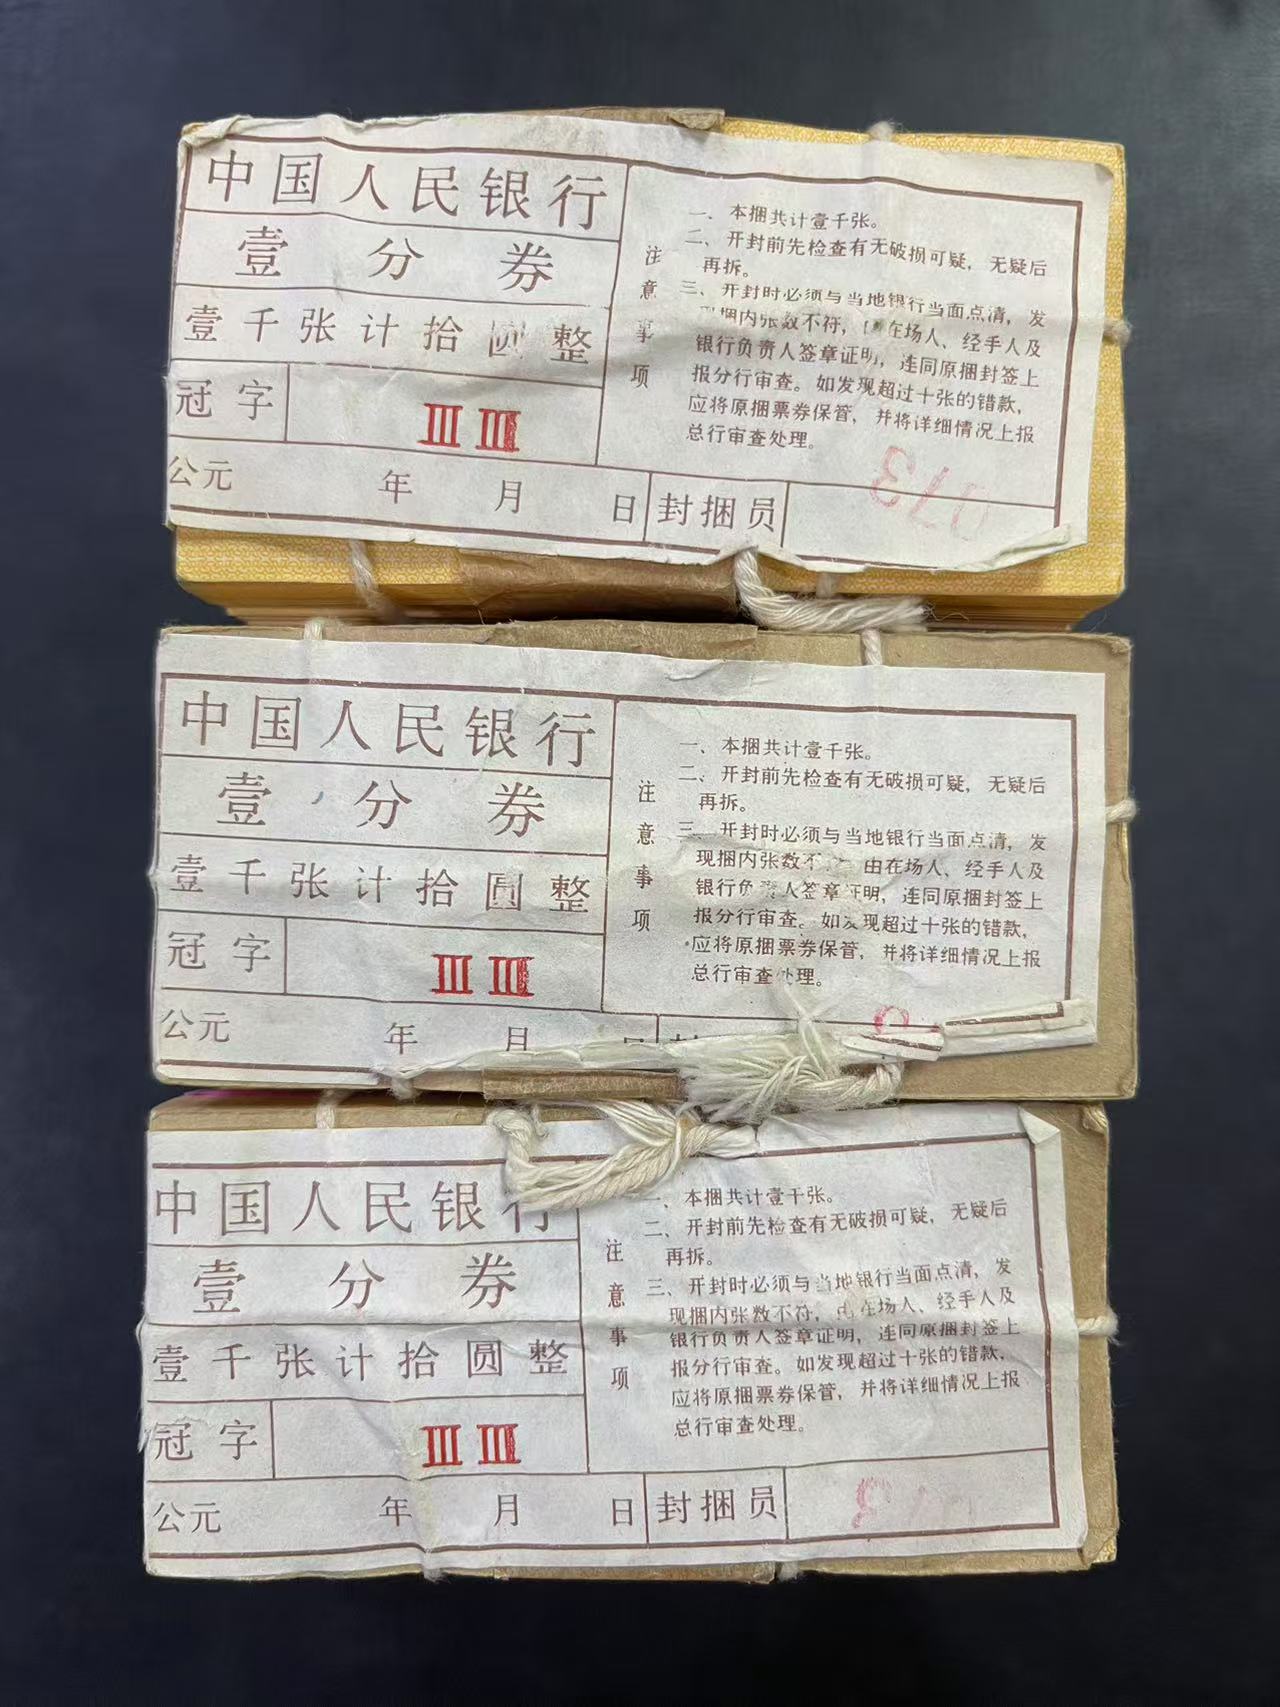 中国人民银行
壹分券
壹千张计拾圆整
冠字 III III
公元 年 月 日 封捆员 073
注意事项
一、本捆共计壹千张。
二、开封前先检查有无破损可疑，无疑后
再拆。
三、开封时必须与当地银行当面点清，发
现捆内张数不符，由在场人、经手人及
银行负责人签章证明，连同原捆封签上
报分行审查。如发现超过十张的错款，
应将原捆票券保管，并将详细情况上报
总行审查处理。
中国人民银行
壹分券
壹千张计拾圆整
冠字 III III
公元 年 月 日
注意事项
一、本捆共计壹千张。
二、开封前先检查有无破损可疑，无疑后
再拆。
三、开封时必须与当地银行当面点清，发
现捆内张数不 由在场人、经手人及
银行负责人签章证明，连同原捆封签上
报分行审查。如发现超过十张的错款，
应将原捆票券保管，并将详细情况上报
总行审查处理。
中国人民银行
壹分券
壹千张计拾圆整
冠字 III III
公元 年 月 日 封捆员
注意事项
一、本捆共计壹千张。
二、开封前先检查有无破损可疑，无疑后
再拆。
三、开封时必须与当地银行当面点清，发
现捆内张数不符，由在场人、经手人及
银行负责人签章证明，连同原捆封签上
报分行审查。如发现超过十张的错款，
应将原捆票券保管，并将详细情况上报
总行审查处理。